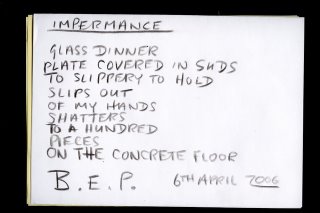 IMPERMANCE
GLASS DINNER
PLATE COVERED IN SUDS
TO SLIPPERY TO HOLD
SLIPS OUT
OF MY HANDS
SHATTERS
TO A HUNDRED
PIECES
ON THE CONCRETE FLOOR
B.E.P. 6TH APRIL 2006